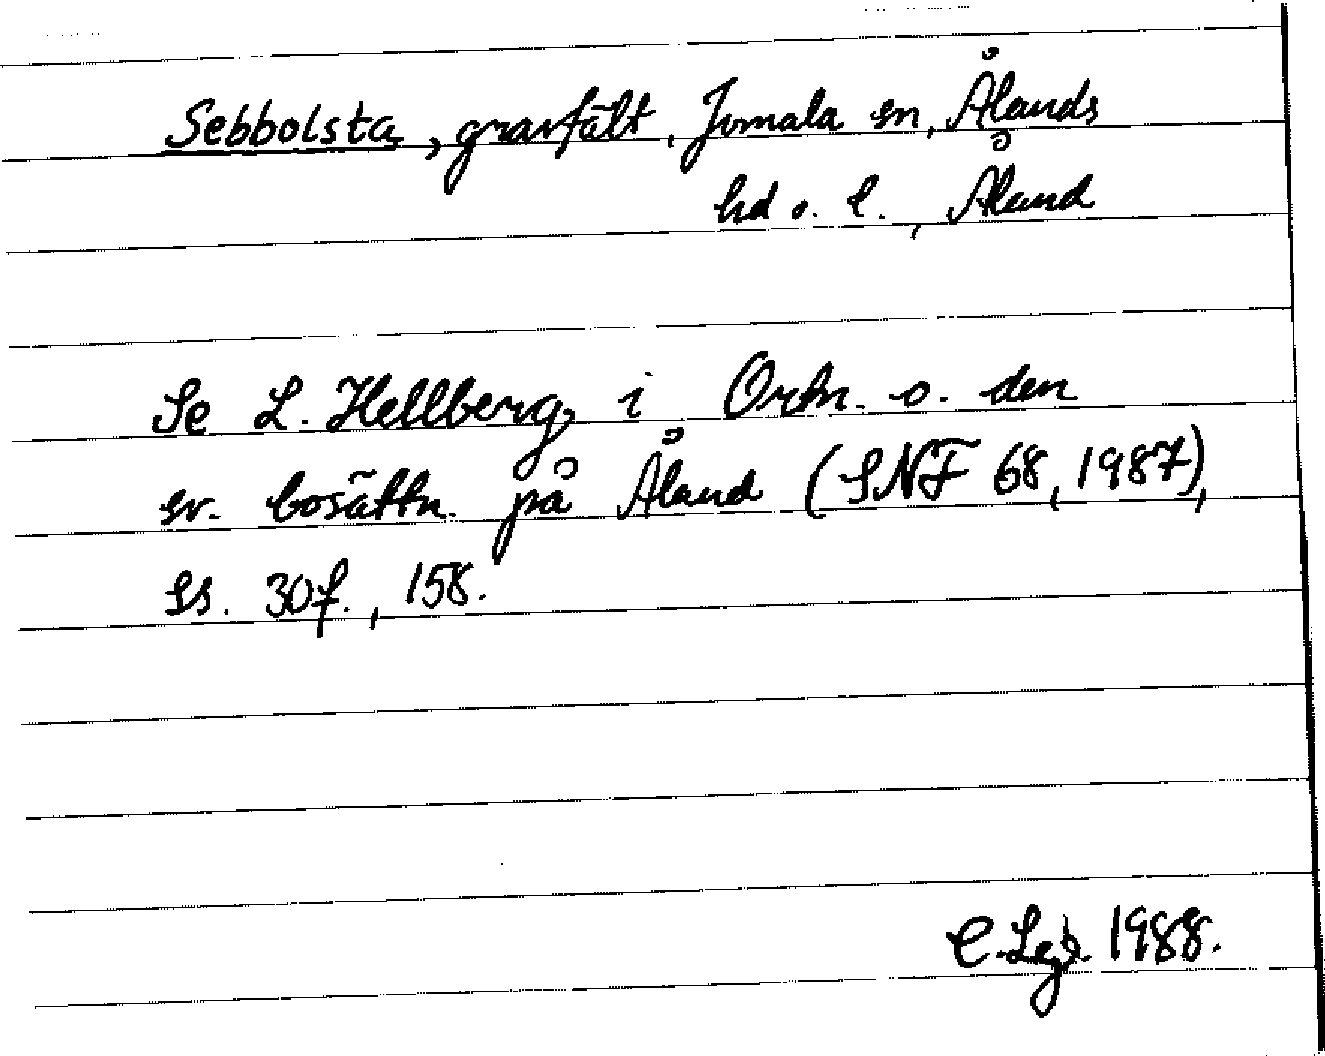 Sebbolsta, gravfält, Jomala sn, Ålands
hd o. l., Åland
Se L. Hellberg, i Ortn. o. den
sv. bosättn. på Åland (SNF 68, 1987),
ss. 30f., 158.
1988.